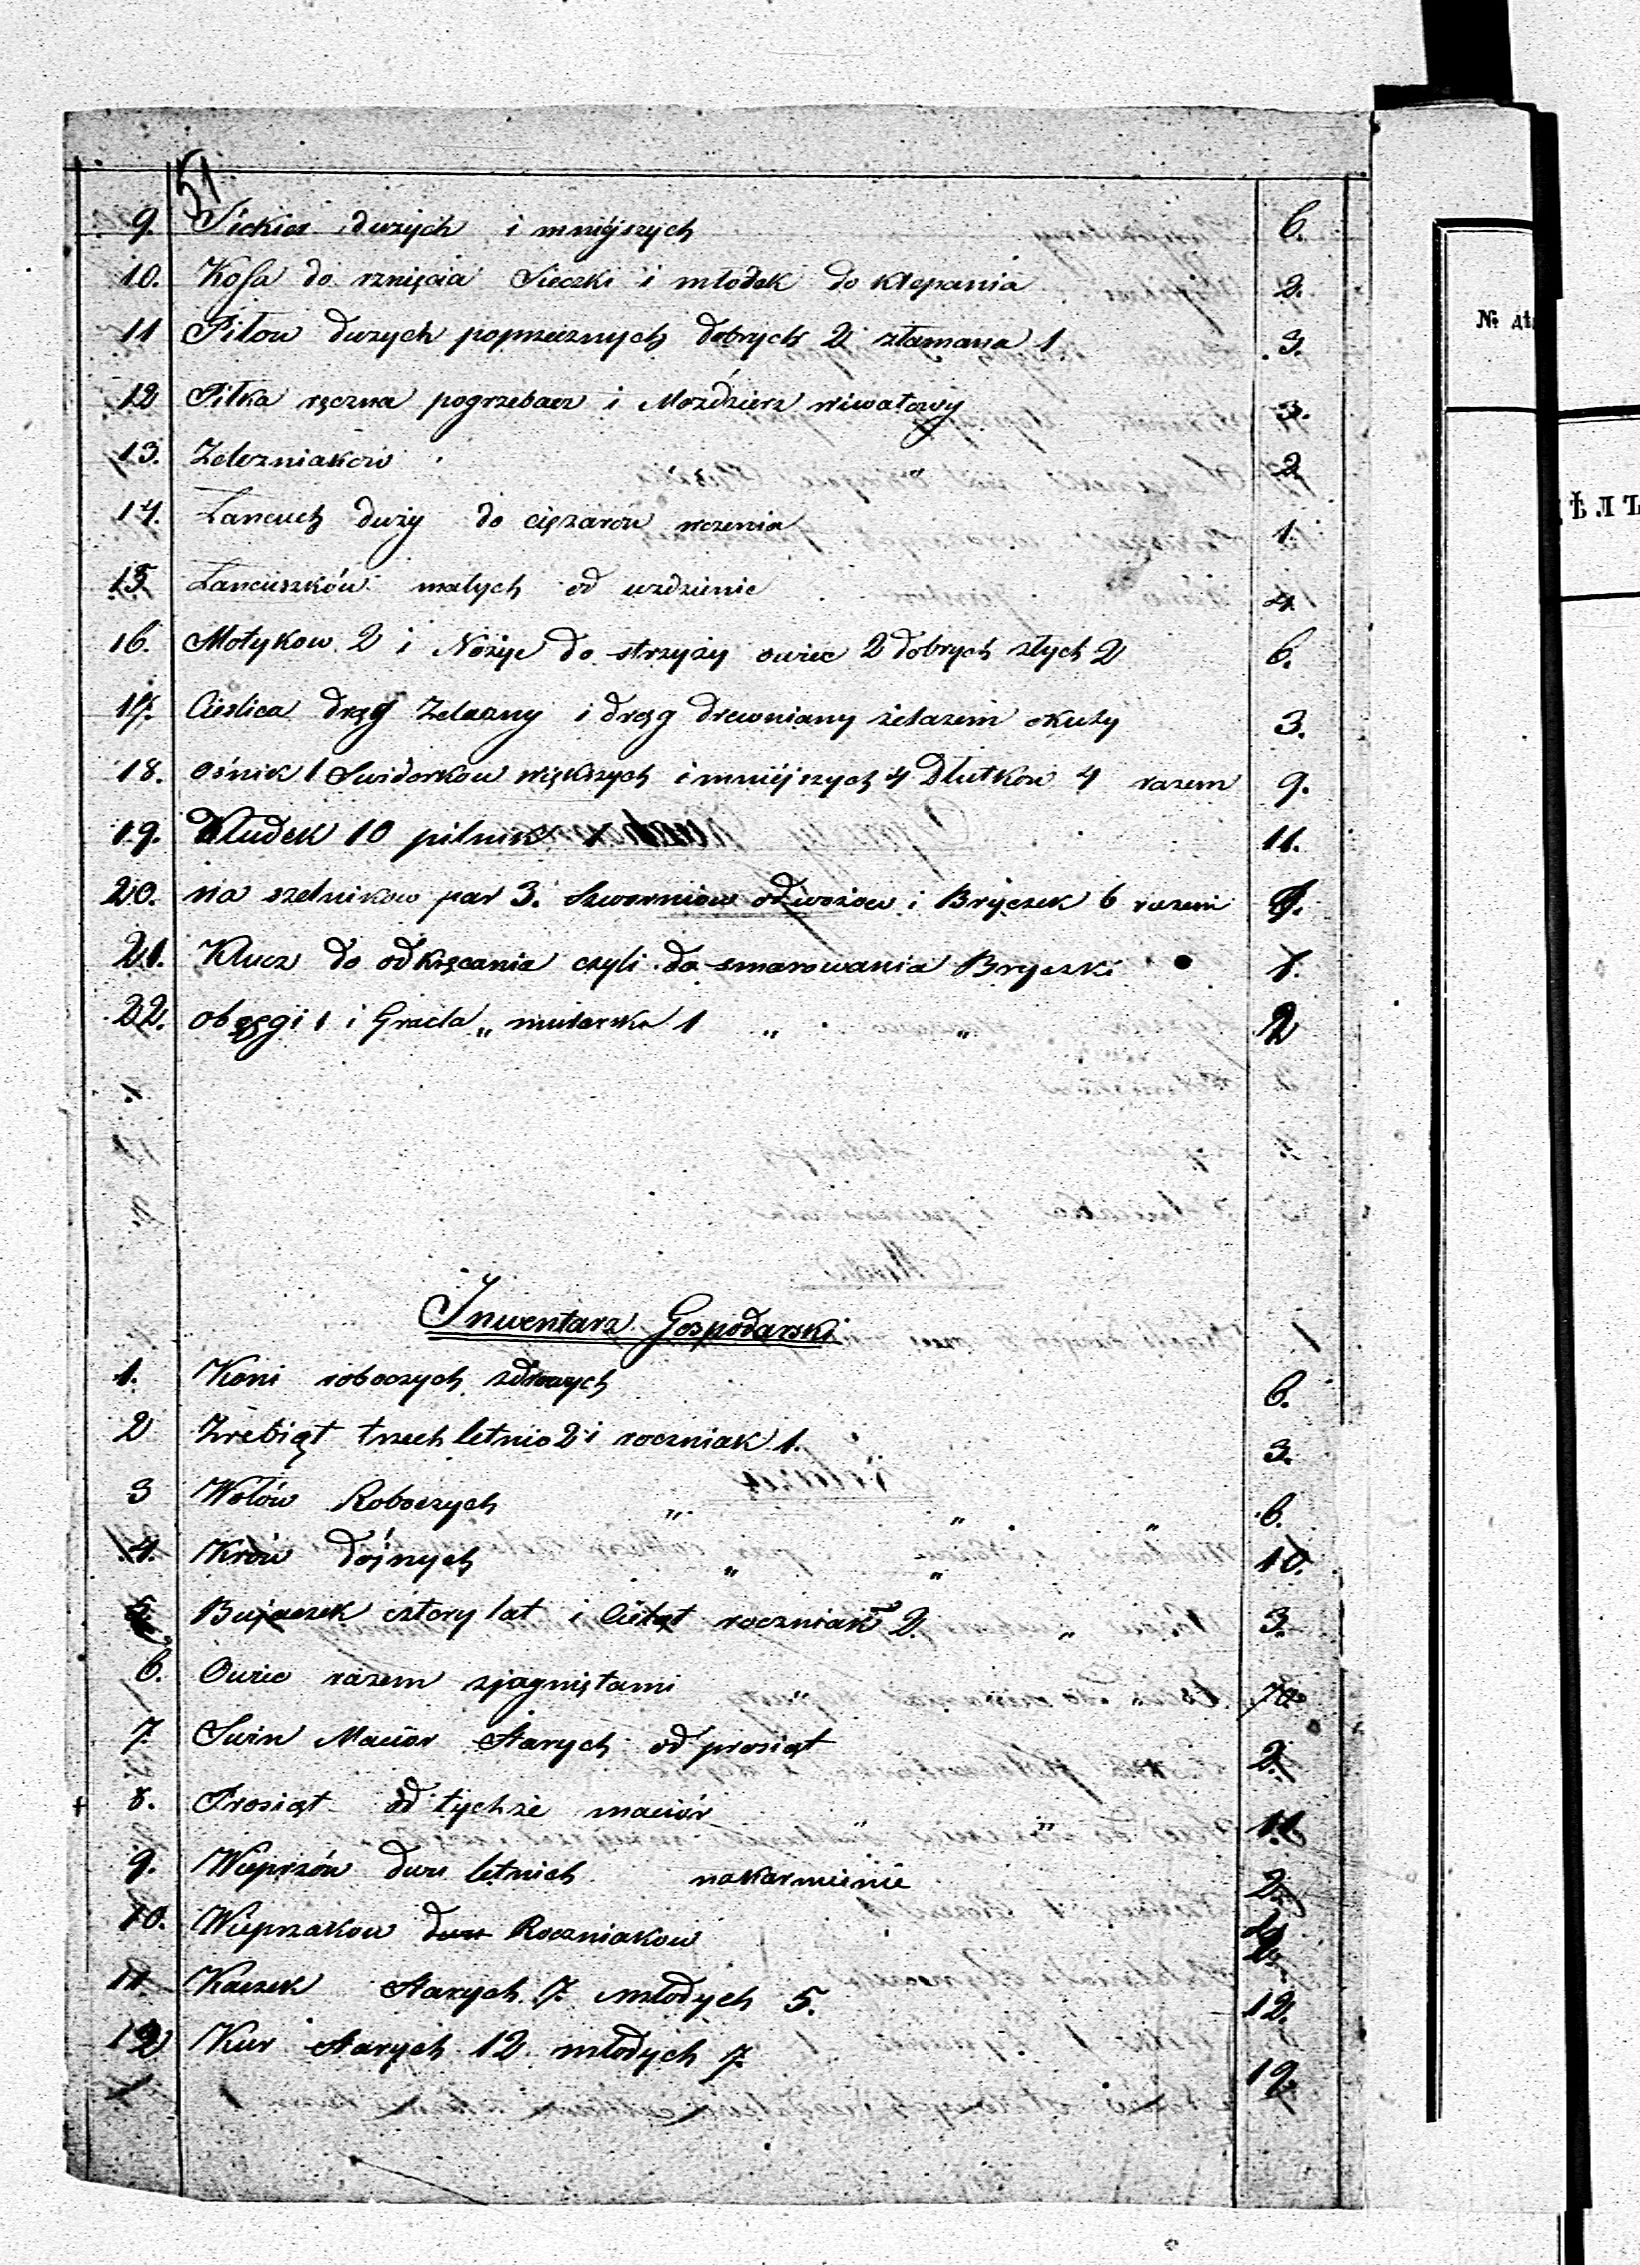 51
9. Siekier dużych i mniejszych 6.
10. Kosa do rznięcia Sieczki i młotek do klepania 2.
11 Piłow dużych poprzecznych dobrych 2 złamana 1. 3.
12 Piłka ręczna pogrzebacz i Moździerz wiwatowy 3.
13. Zelezniakow 2
14. Łancuch duży do ciężarow wożenia 1.
15. Łancuszków małych od uzdzienic 4
16. Motykow 2 i Nożyc do strzyży owiec 2 dobrych złych 2 6.
17. Cieslica drąg Zelazny i drąg drewniany żelazem okuty 3.
18. ośnik 1 Swidorkow większych i mniejszych 4 Dłutkow 4 razem 9.
19. Dłudek 10 pilnik 11.
20. na szelnikow par 3. Szworniow od wozow i Bryczek 6 razem 9.
21. Klucz do odkręcania czyli do smarowania Bryczki 1.
22. obcęgi 1 i Gracla „ mularska 1 „ „ 2
Inwentarz Gospodarski
1. Koni roboczych zdrowych 6.
2 Zrebiąt trzech letnio 2 i roczniak 1. 3.
3 Wołów Roboczych „ „ „ 6.
4. Krów dójnych „ „ 10.
5. Bujaczek cztory lat i Cieląt roczniak 2. „ 3.
6. Owiec razem zjagniętami 70
7. Swin Macior starych od prosiąt 2.
8. Prosiąt od tychże maciór „ „ 11.
9. Wieprzów dwu letnich nakarmienie 2.
10. Wieprzakow dwu Roczniakow 2.
11. Kaczek starych 7. młodych 5. 12.
12 Kur starych 12 młodych 7. 19.
№
ѢЛЪ